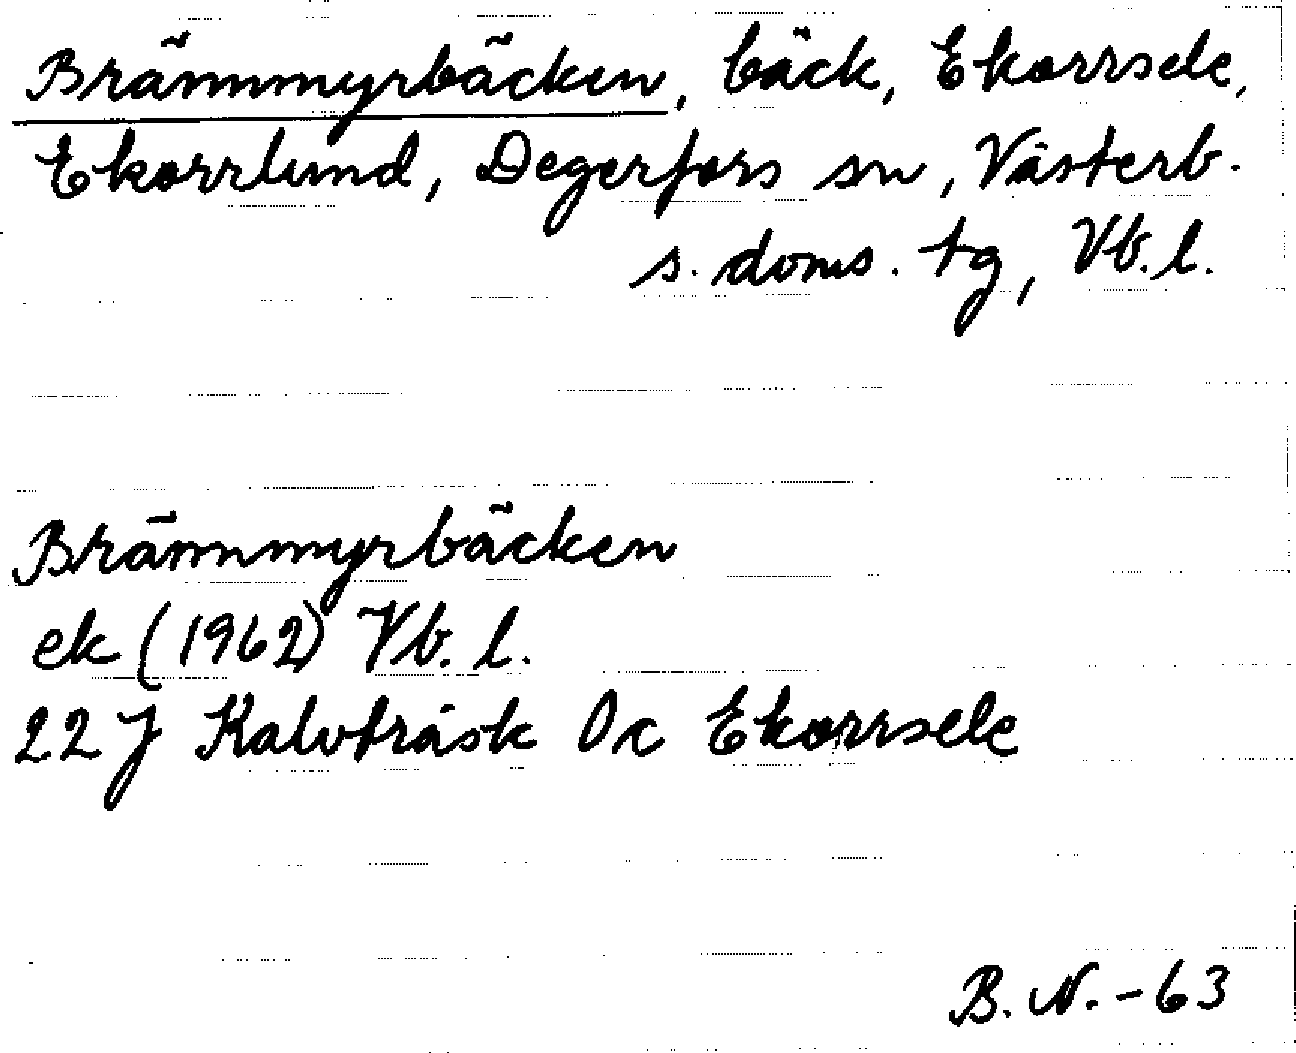 Brännmyrbäcken, bäck, Ekorrsele,
Ekorrlund, Degerfors sn, Västerb.
s. doms. tg, Vb. l.
Brännmyrbäcken
ek (1962) Vb. l.
22 J Kalvträsk 0c Ekorrsele
B. N. -63